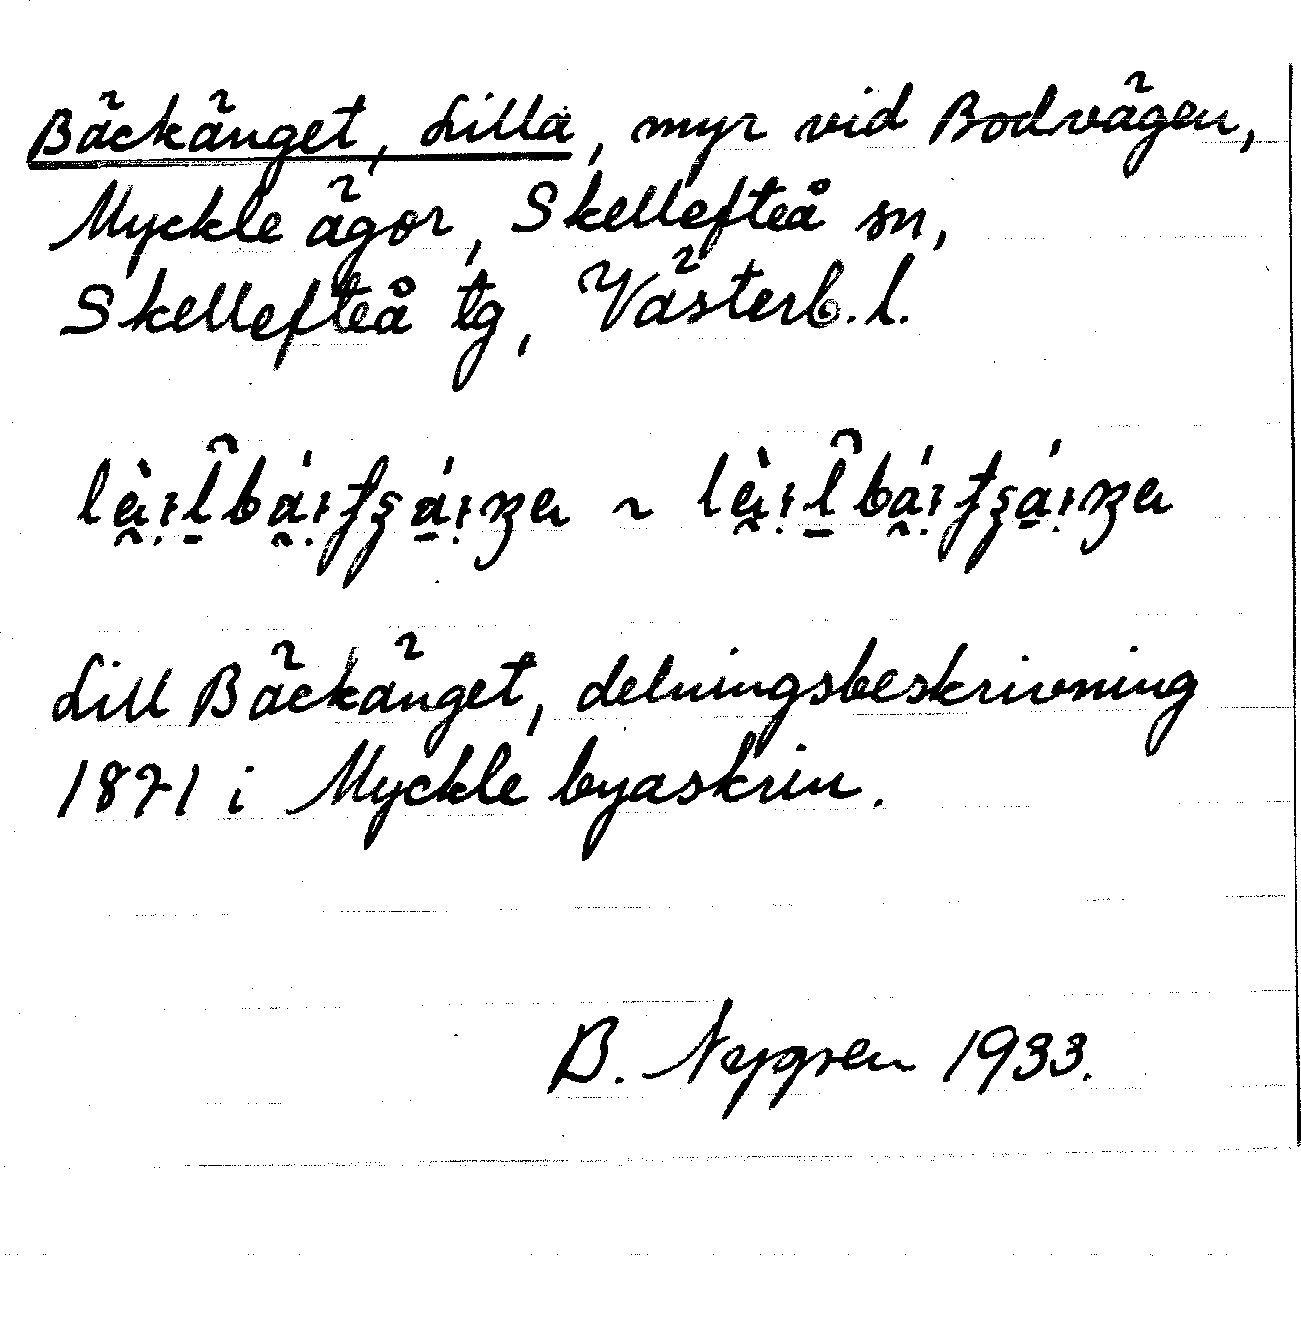 Bäckänget, Lilla, myr vid Bodvägen,
Myckle ägor, Skellefteå sn,
Skellefteå tg, Västerb. l.
Lill Bäckänget, delningsbeskrivning
1871 i Myckle byaskrin.
B. Nygren 1933.